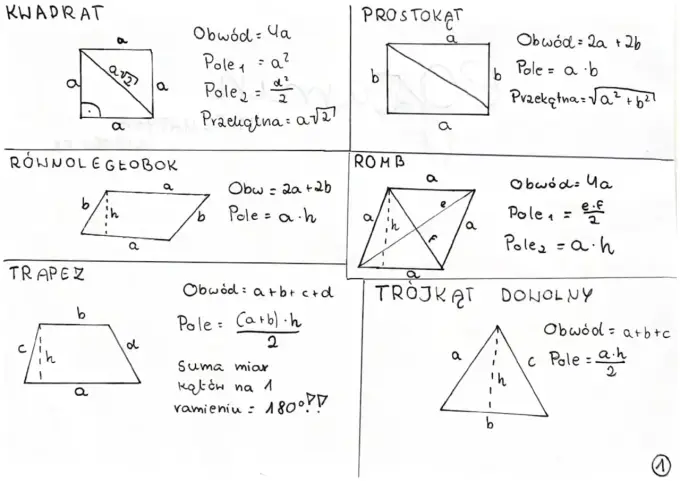 KWADRAT
a
a
a√2
a
a
Obwód = 4a
Pole₁ = a²
Pole₂ = d²/2
Przekątna = a√2
PROSTOKĄT
a
b
b
a
Obwód = 2a + 2b
Pole = a · b
Przekątna = √a² + b²
RÓWNOLEGŁOBOK
a
b
h
b
a
Obw = 2a + 2b
Pole = a · h
ROMB
a
a
e
h
f
a
a
Obwód = 4a
Pole₁ = e·f/2
Pole₂ = a · h
TRAPEZ
b
c
h
d
a
Obwód = a + b + c + d
Pole = (a+b)·h/2
Suma miar
kątów na 1
ramieniu = 180°!!
TRÓJKĄT DOWOLNY
a
h
c
b
Obwód = a+b+c
Pole = a·h/2
1